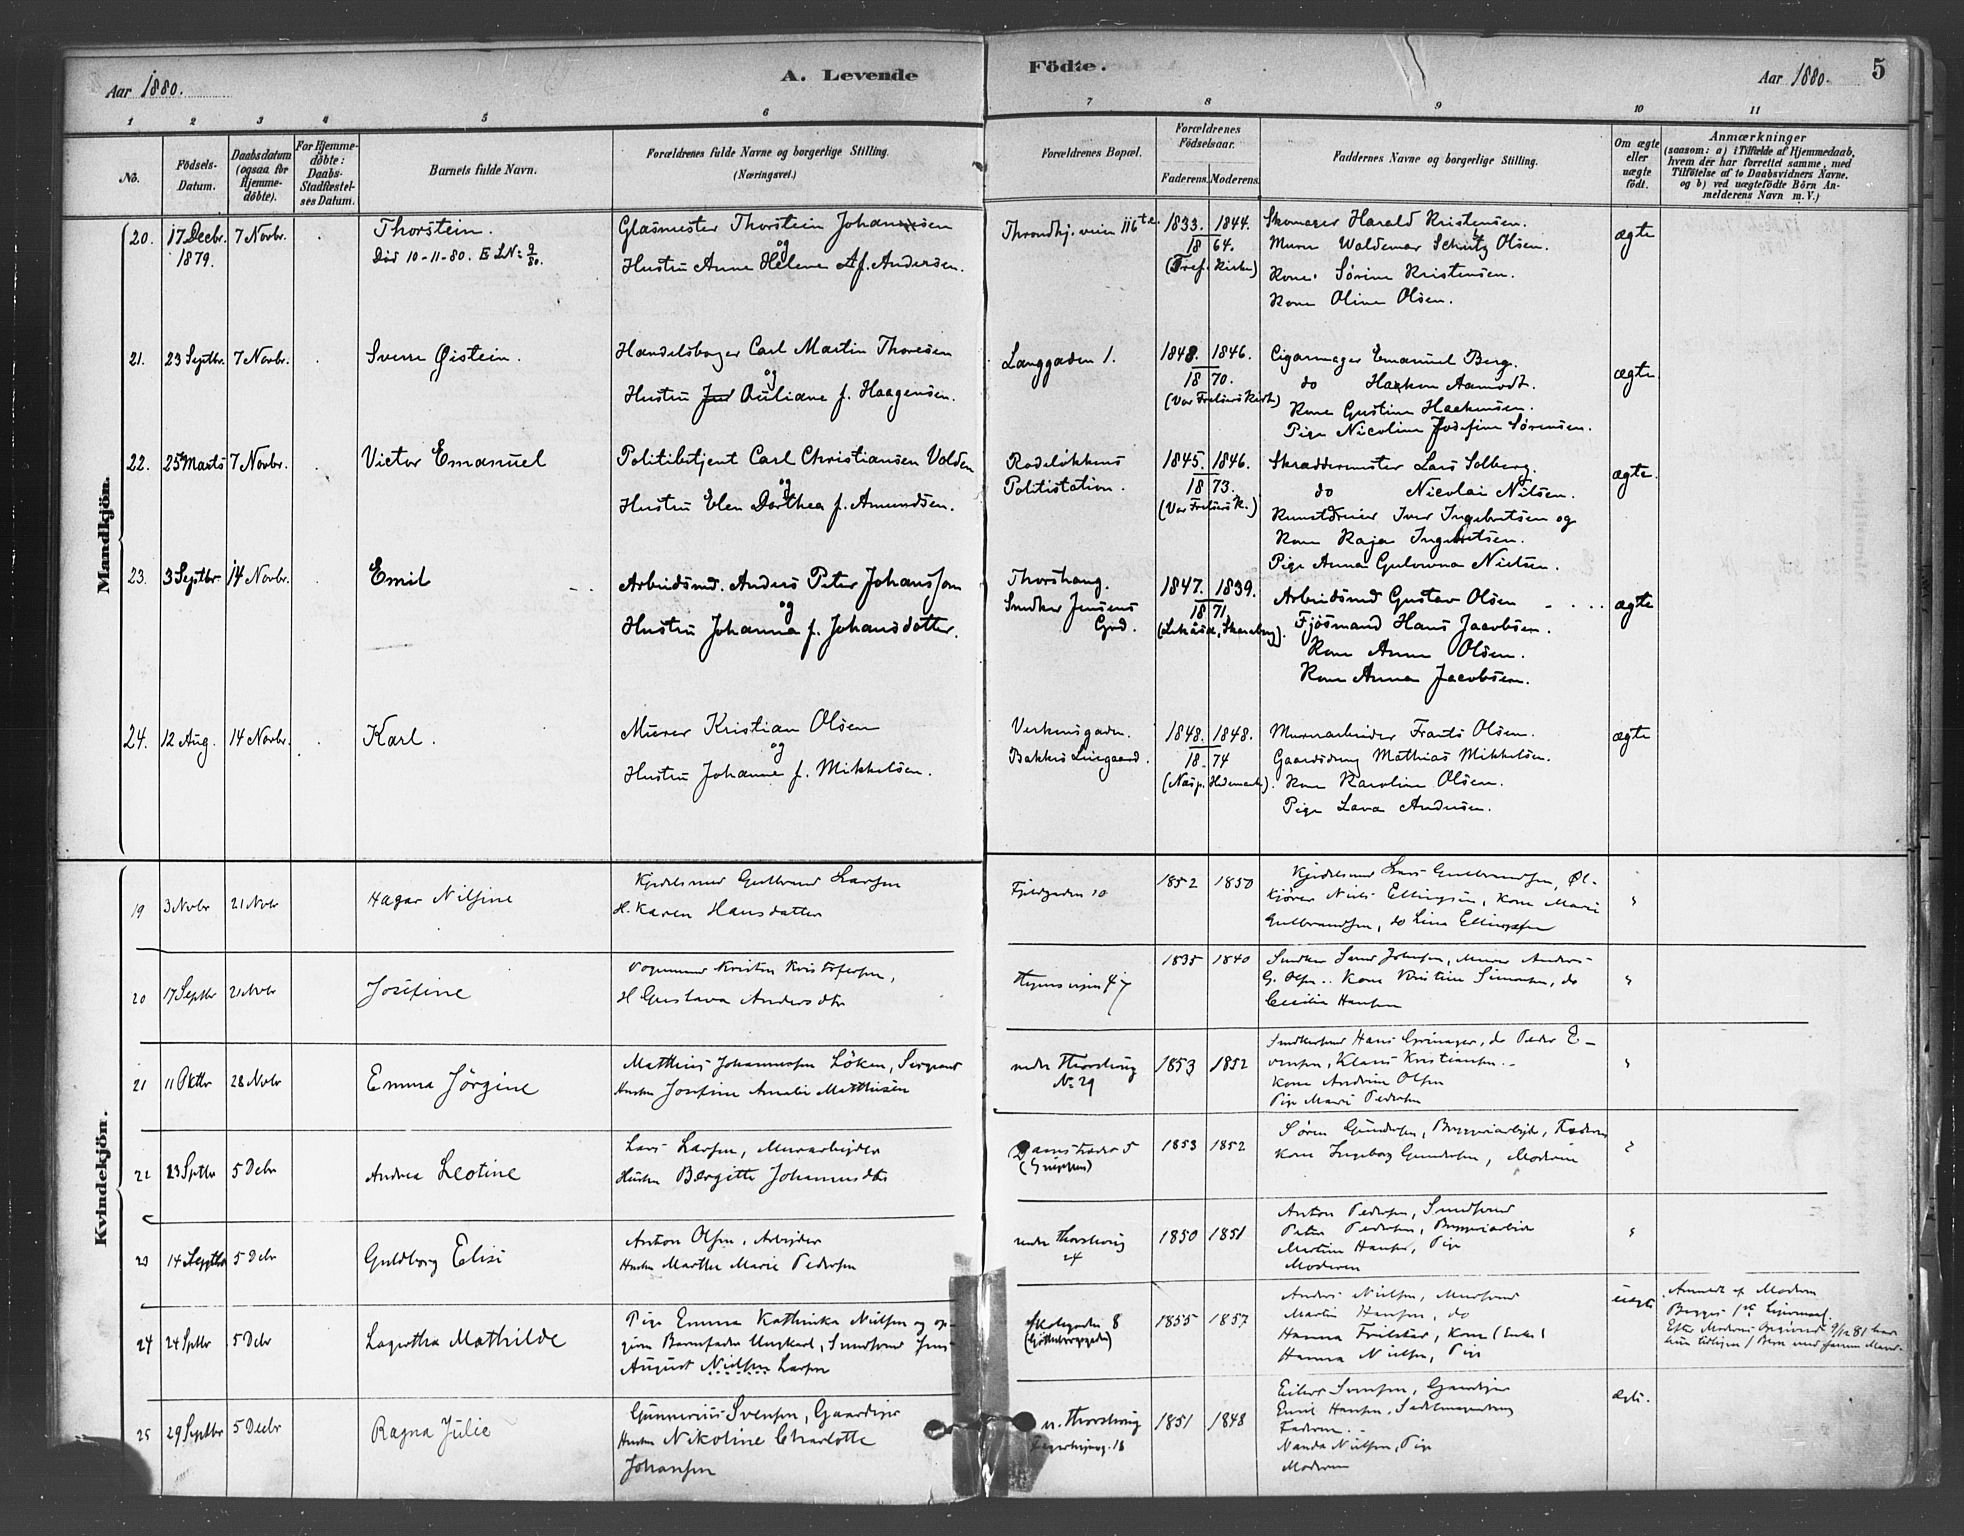 Aar 1880.
A. Levende
Födte.
Aar 1880.
5
1 2 3 4 5 6 7 8 9 10 11
No.
Födsels-Datum.
Daabsdatum (ogsaa for Hjemme-döbte).
For Hjemme-döbte: Daabs-Stadfæstel-ses Datum.
Barnets fulde Navn.
Forældrenes fulde Navne og borgerlige Stilling.
(Næringsvei.)
Forældrenes Bopæl.
Forældrenes Födselsaar.
Faderens. Moderens.
Faddernes Navne og borgerlige Stilling.
Om ægte eller uægte födt.
Anmærkninger
(saasom: a) i Tilfælde af Hjemmedaab,
hvem der har forrettet samme, med
Tilföielse af to Daabsvidners Navne,
og b) ved uægtefödte Börn An-
melderens Navn m. V.)
Mandkjön.
20. 17 Decbr. 1879. 7 Novbr.
Thorstein.
Död 10-11-80. E LN: 9/80.
Glasmester Thorstein Johannesen
og
Hustru Anne Helene f. Andersen.
Throndhj. veien 116
1833. 1844.
18 64.
(Tref. Kirke)
Skomager Harald Kristensen.
Murer Waldemar Schutz Olsen.
Kone Sörine Kristensen.
Kone Oline Olsen.
ægte
21. 23 Septbr. 7 Novbr.
Sverre Øistein.
Handelsborger Carl Martin Thoresen
og
Hustru Juliane f. Haagensen.
Langgaden 1.
1848. 1846.
18 70.
(Vor Frelsers Kirke)
Cigarmager Emanuel Berg.
do Haakon Aamodt.
Kone Gustine Haakensen.
Pige Nicoline Josefine Sörensen.
ægte.
22. 25 Marts 7 Novbr.
Victor Emanuel
Politibetjent Carl Christiansen Volden
og
Hustru Elen Dorthea f. Amundsen.
Rodelökkens
Politistation.
1845. 1846.
18 73.
(Vor Frelsers K.)
Skræddermester Lars Solberg.
do Nicolai Nilsen.
Kunstdreier Iver Ingebretsen og
Kone Kaja Ingebretsen.
Pige Anna Gulovina Nielsen.
ægte.
23. 3 Septbr. 14 Novbr.
Emil
Arbeidsmd. Anders Peter Johansson
og
Hustru Johanna f. Johansdotter.
Thorshaug.
Snedker Jensens
Grd.
1847. 1839.
18 71.
Arbeidsmd Gustav Olsen
Fjösmand Hans Jacobsen.
Kone Anne Olsen.
Kone Anna Jacobsen.
ægte
24. 12 Aug. 14 Novbr.
Karl.
Murer Kristian Olsen
og
Hustru Johanne f. Mikkelsen.
Verkensgaden.
Bakkes Leiegaard.
1848. 1848.
18. 74
(Næsp. Hedemark).
Murerarbeider Frants Olsen.
Gaardsdreng Mathias Mikkelsen.
Kone Karoline Olsen.
Pige Lava Andersen.
ægte
Kvindekjön.
19 3 Nvbr 21 Nvbr
Hagar Nilsine
Kjedelsmed Gulbrand Larsen
H. Karen Hansdatter
Fjeldgaden 10
1852 1850
Kjedelsmed Lars Gulbrandsen, Øl-
kjörer Niels Ellingsen, Kone Marie
Gulbrandsen, do Lina Ellingsen
20 17 Septbr 21 Nvbr
Josefine
Vognmand Kristen Kristofersen,
H Gustava Andersdtr
47
1835 1840
G. Olsen.. Kone Kristine Simonsen, do
Cecilia Hansen
21 11 Oktbr 28 Nvbr
Emma Jörgine
Matthius Johannesen Löken, Sergeant
Hustru Josefine Amalie Matthisen
nedre Thorshaug
No 29
1853 1852
Snedkersvend Hans Grinager, do Peder E-
vensen, Klaus Kristiansen..
Kone Andrine Olsen
Pige Marie Pedersen
22 23 Sptbr 5 Debr
Andrea Leotine
Lars Larsen, Murarbejder
Hustru Bergitte Johannesdtr
5
1853 1852
Sören Gundersen, Bryggeriarbejd., Faderen
Kone Ingeborg Gundersen, Moderen
23 14 Septbr 5 Debr
Guldborg Elise
Anton Olsen, Arbejder
Hustru Marthe Marie Pedersen
nedre Thorshaug
24
1850 1851
Anton Pedersen, Smedsvend
Peter Pedersen, Bryggeriarbeider
Martine Hansen, Pige
Moderen
24 24 Sptbr 5 Debr
Lagertha Mathilde
Pige Emma Kathinka Nielsen og op-
given Barnefader Ungkarl, Smedsvend Jens
August Nielsen Larsen
8
(Göteborggaden)
1855 1857
Anders Nielsen, Mursvend
Martin Hansen, do
Hanna Kone (Enke)
Hanna Nielsen, Pige
uægte
Anmeldt af Moderen
25 29 Septbr 5 Decbr
Ragna Julie
Gunnerius Svensen, Gaardejer
Hustru Nikoline Charlotte
Johansen
n. Thorshaug
18
1851 1848
Svensen, Gaardejer
Emil Hansen, Sadelmagersvend
Faderen..
Nanda Nielsen, Pige
Moderen
Ægte.